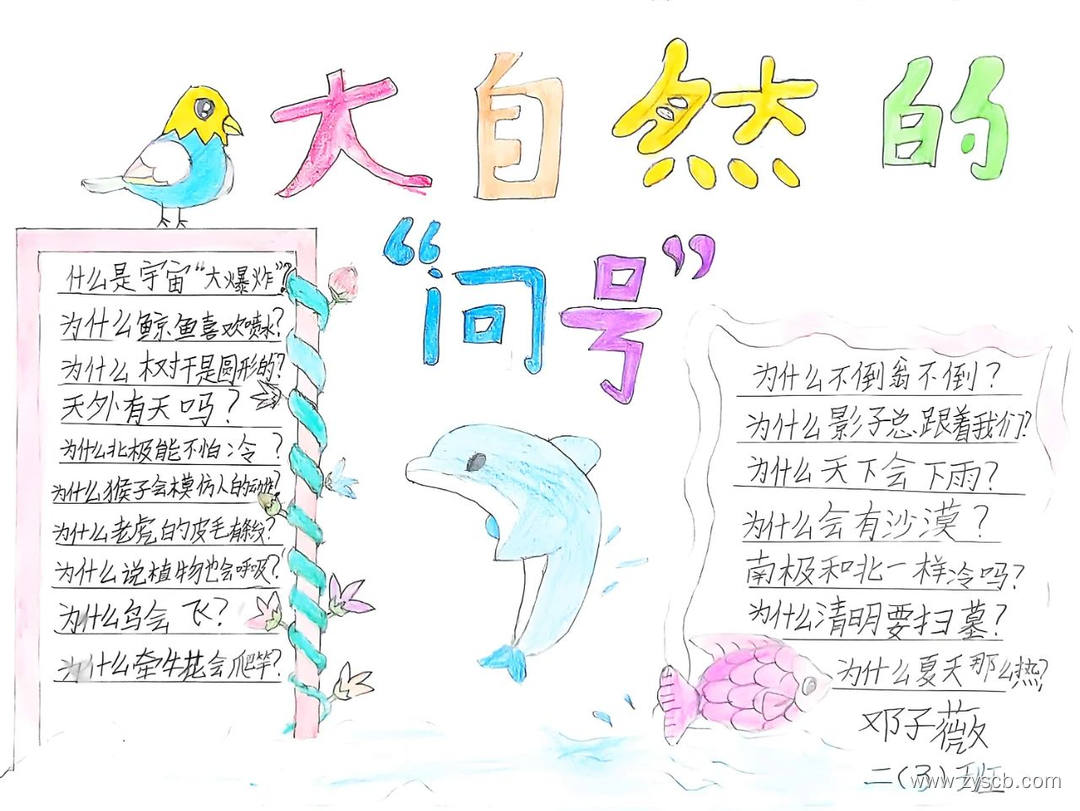 大自然的
“问号”
什么是宇宙“大爆炸”?
为什么鲸鱼喜欢喷水?
为什么树干是圆形的?
天外有天吗?
为什么北极能不怕冷?
为什么猴子会模仿人的动作?
为什么老虎的皮毛有条纹?
为什么说植物也会呼吸?
为什么鸟会飞?
为什么牵牛花会爬竿?
为什么不倒翁不倒?
为什么影子总跟着我们?
为什么天下会下雨?
为什么会有沙漠?
南极和北一样冷吗?
为什么清明要扫墓?
为什么夏天那么热?
邓子薇
二(3)班
www.zyscb.com